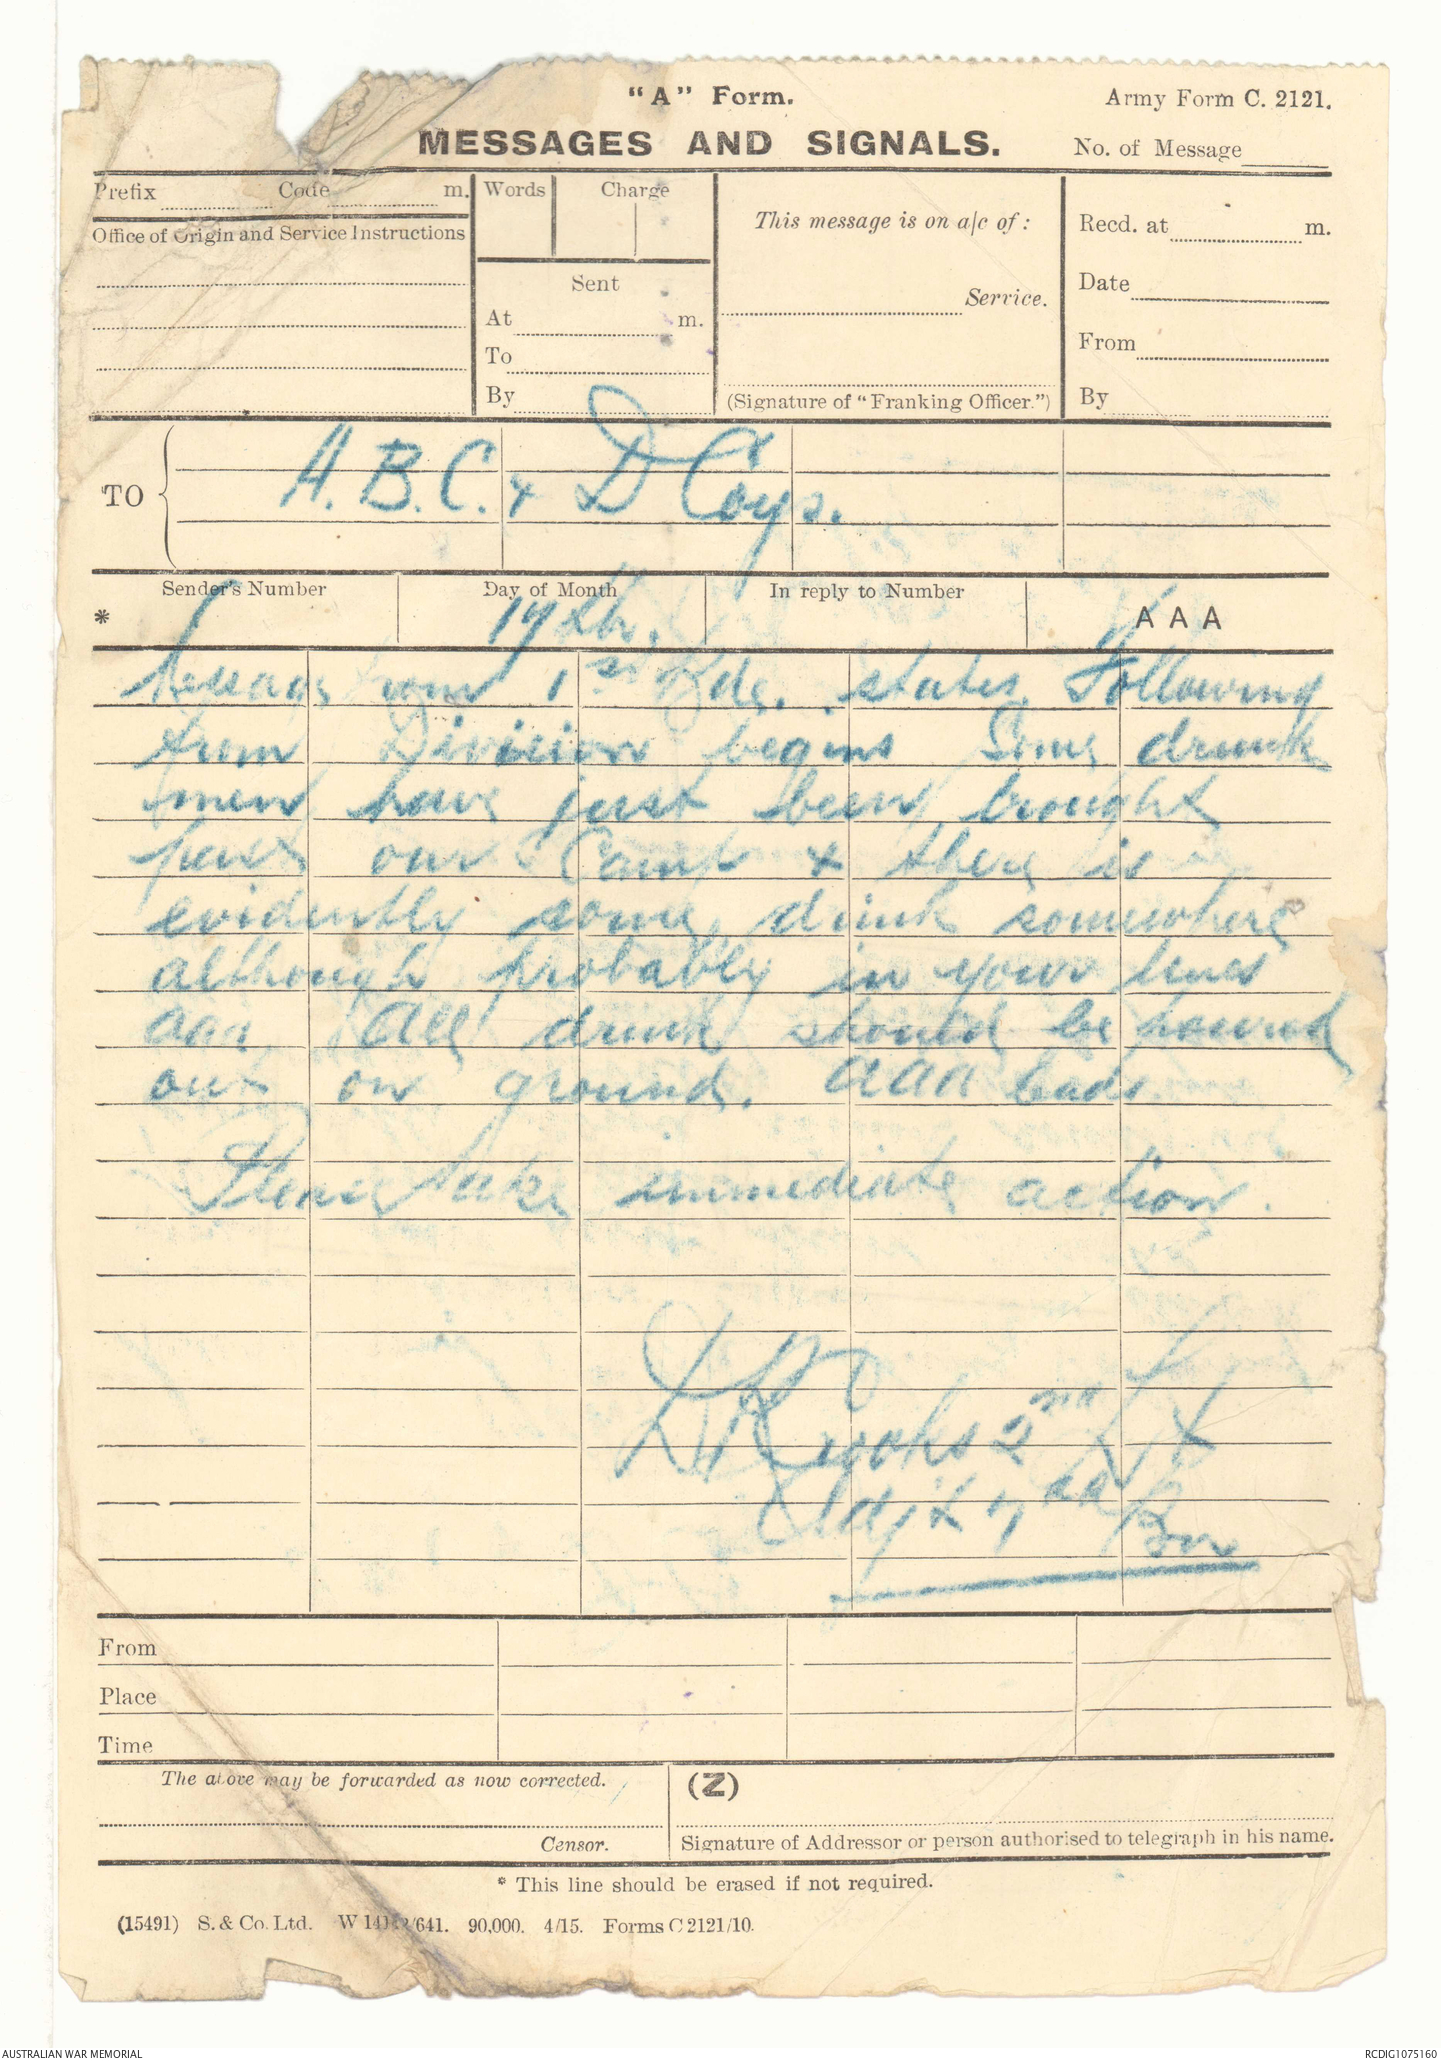 "A" Form.
Army Form C. 2121.
MESSAGES AND SIGNALS.
No. of Message
Prefix Code m.
Words Charge
This message is on a/c of:
Recd. at m.
Office of Origin and Service Instructions
Sent
Service.
Date
At m.
To
From
By
(Signature of "Franking Officer.")
By
TO
A. B. C. & D Coys.
Sender's Number
Day of Month
In reply to Number
*
17th.
AAA
Message from 1st Bde. states Following
from Division begins Some drunk
men have just been brought
past our Camp & there is
evidently some drink somewhere
although probably in your lines
aaa All drink should be poured
out on ground. aaa Ends.
Please take immediate action.
2nd Lt
Adj't 7 Bn
From
Place
Time
The above may be forwarded as now corrected.
(Z)
Censor.
Signature of Addressor or person authorised to telegraph in his name.
* This line should be erased if not required.
(15491) S. & Co. Ltd. /641. 90,000. 4/15. Forms C 2121/10.
AUSTRALIAN WAR MEMORIAL
RCDIG1075160